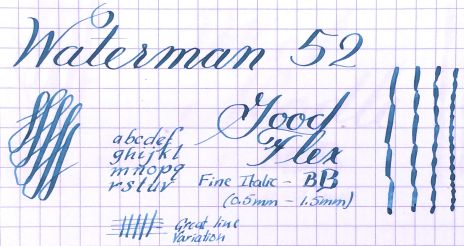 Waterman 52
Good
Flex
abcdef
ghijkl
mnopq
rstuv
Fine Italic - BB
(0.5mm - 1.5mm)
Great line
Variation